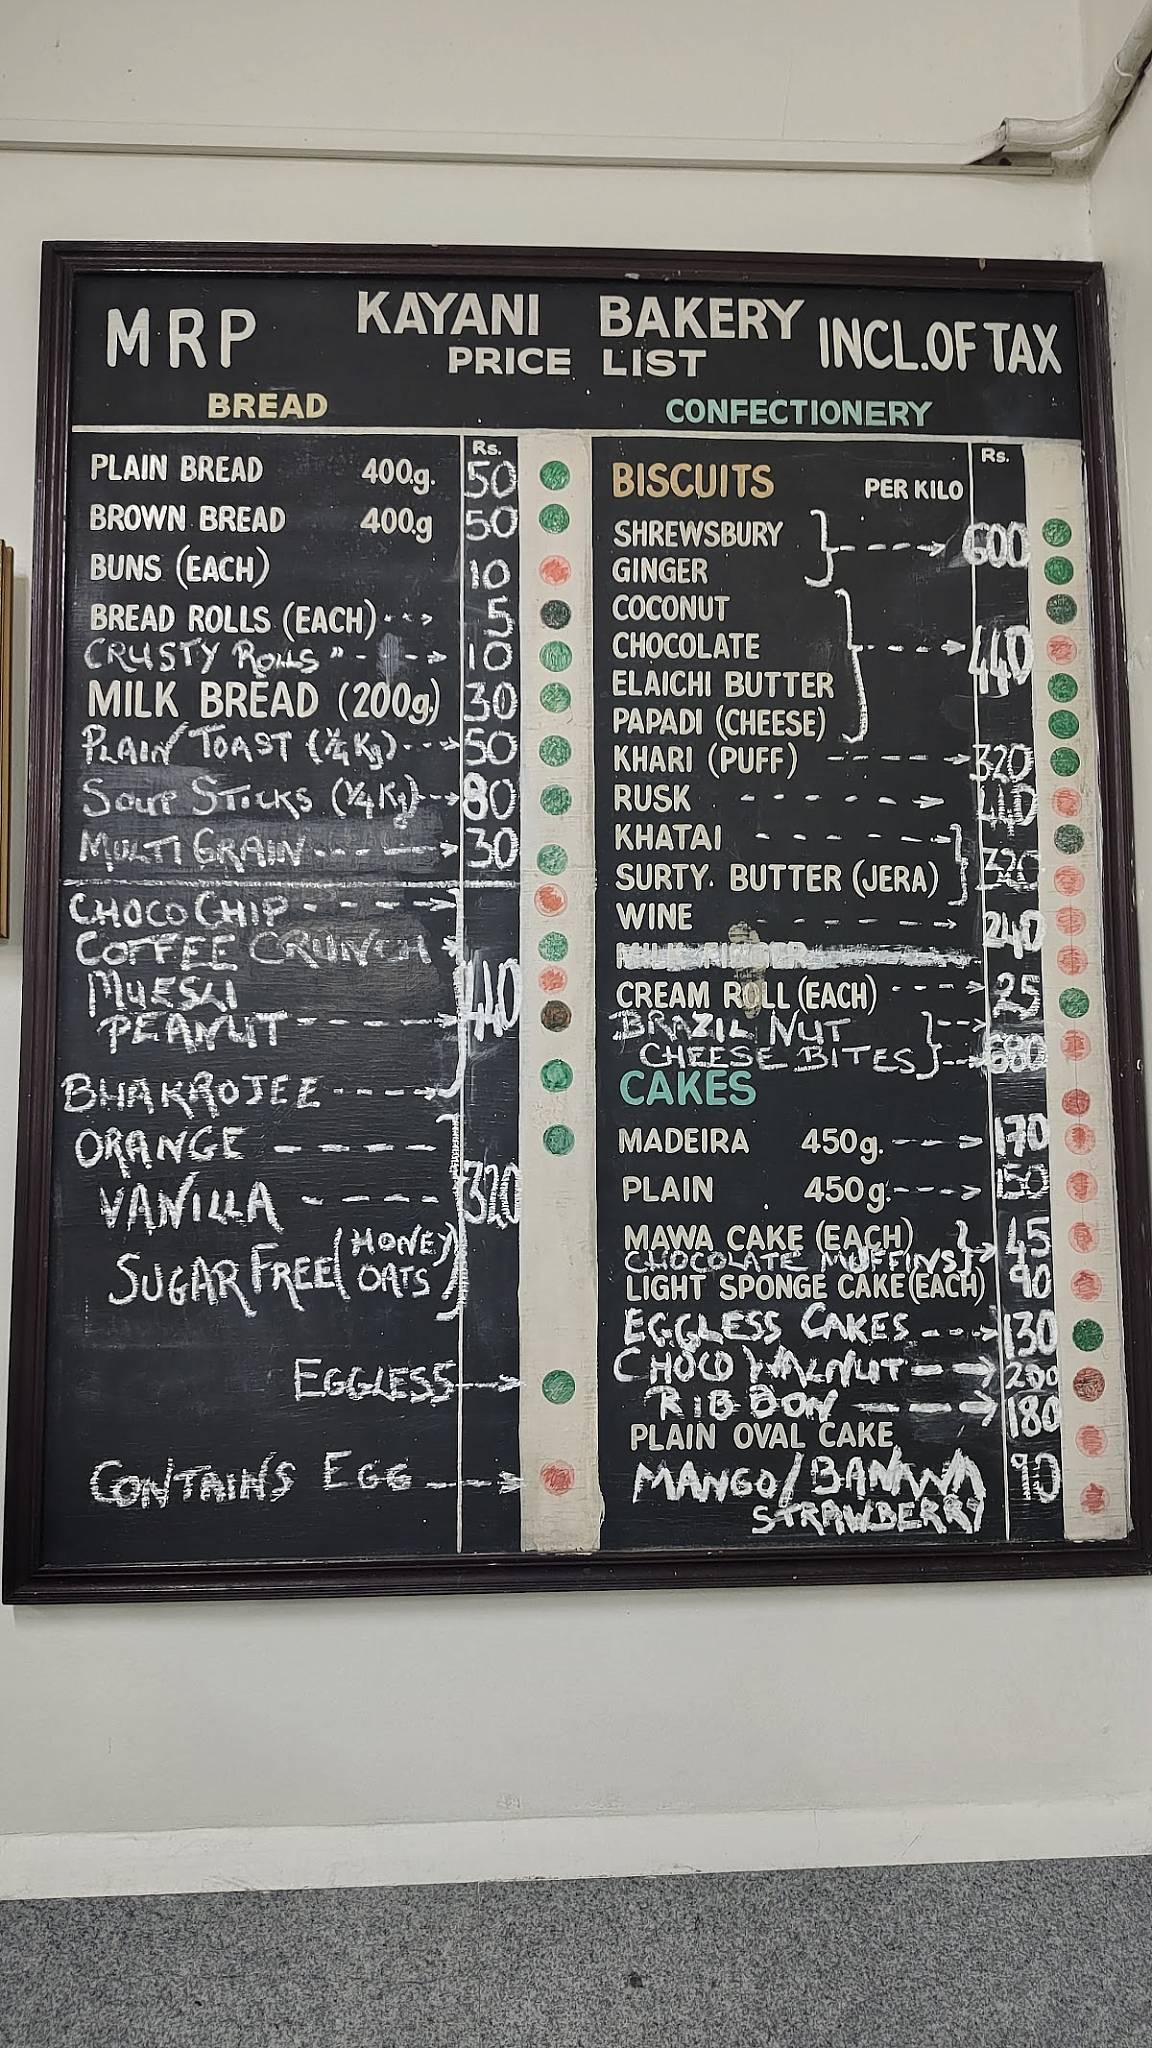 MRP KAYANI BAKERY INCL.OF TAX
PRICE LIST
BREAD
Rs.
PLAIN BREAD 400g. 50
BROWN BREAD 400g 50
BUNS (EACH) 10
BREAD ROLLS (EACH) 5
CRUSTY ROLLS " 10
MILK BREAD (200g) 30
PLAIN TOAST (1/4 Kg) 50
SOUP STICKS (1/4 Kg) 80
MULTI GRAIN 30
CHOCO CHIP
COFFEE CRUNCH
MUESLI 440
PEANUT
BHAKROJEE
ORANGE
VANILLA 320
SUGAR FREE (HONEY
OATS)
EGGLESS
CONTAINS EGG
CONFECTIONERY
Rs.
BISCUITS PER KILO
SHREWSBURY 600
GINGER
COCONUT
CHOCOLATE 440
ELAICHI BUTTER
PAPADI (CHEESE)
KHARI (PUFF) 320
RUSK
KHATAI 320
SURTY. BUTTER (JERA)
WINE 240
MILK FINGER
CREAM ROLL (EACH) 25
BRAZIL NUT
CHEESE BITES 680
CAKES
MADEIRA 450g. 170
PLAIN 450g. 150
MAWA CAKE (EACH) 45
CHOCOLATE MUFFINS
LIGHT SPONGE CAKE (EACH) 90
EGGLESS CAKES 130
CHOCO WALNUT 200
RIBBON 180
PLAIN OVAL CAKE
MANGO/BANANA 90
STRAWBERRY